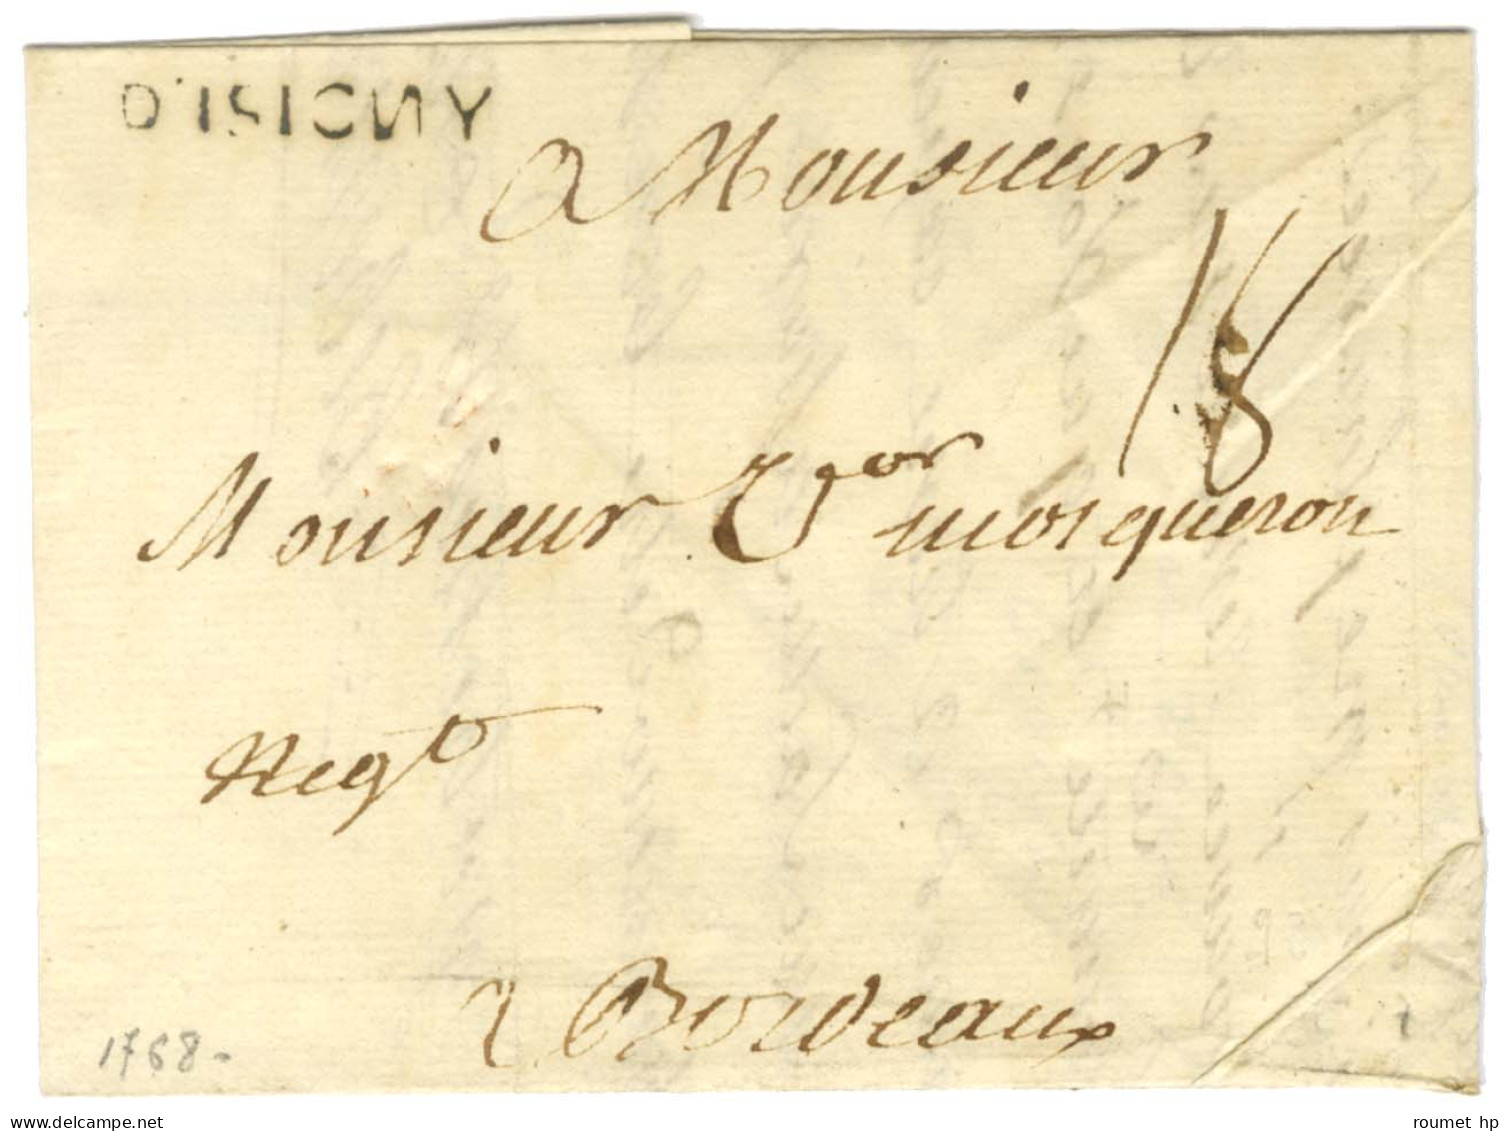 D'ISIGNY
a Monsieur
18
Monsieur Vor mosqueron
Negt
a Bordeaux
1768-
delcampe.net
roumet hp